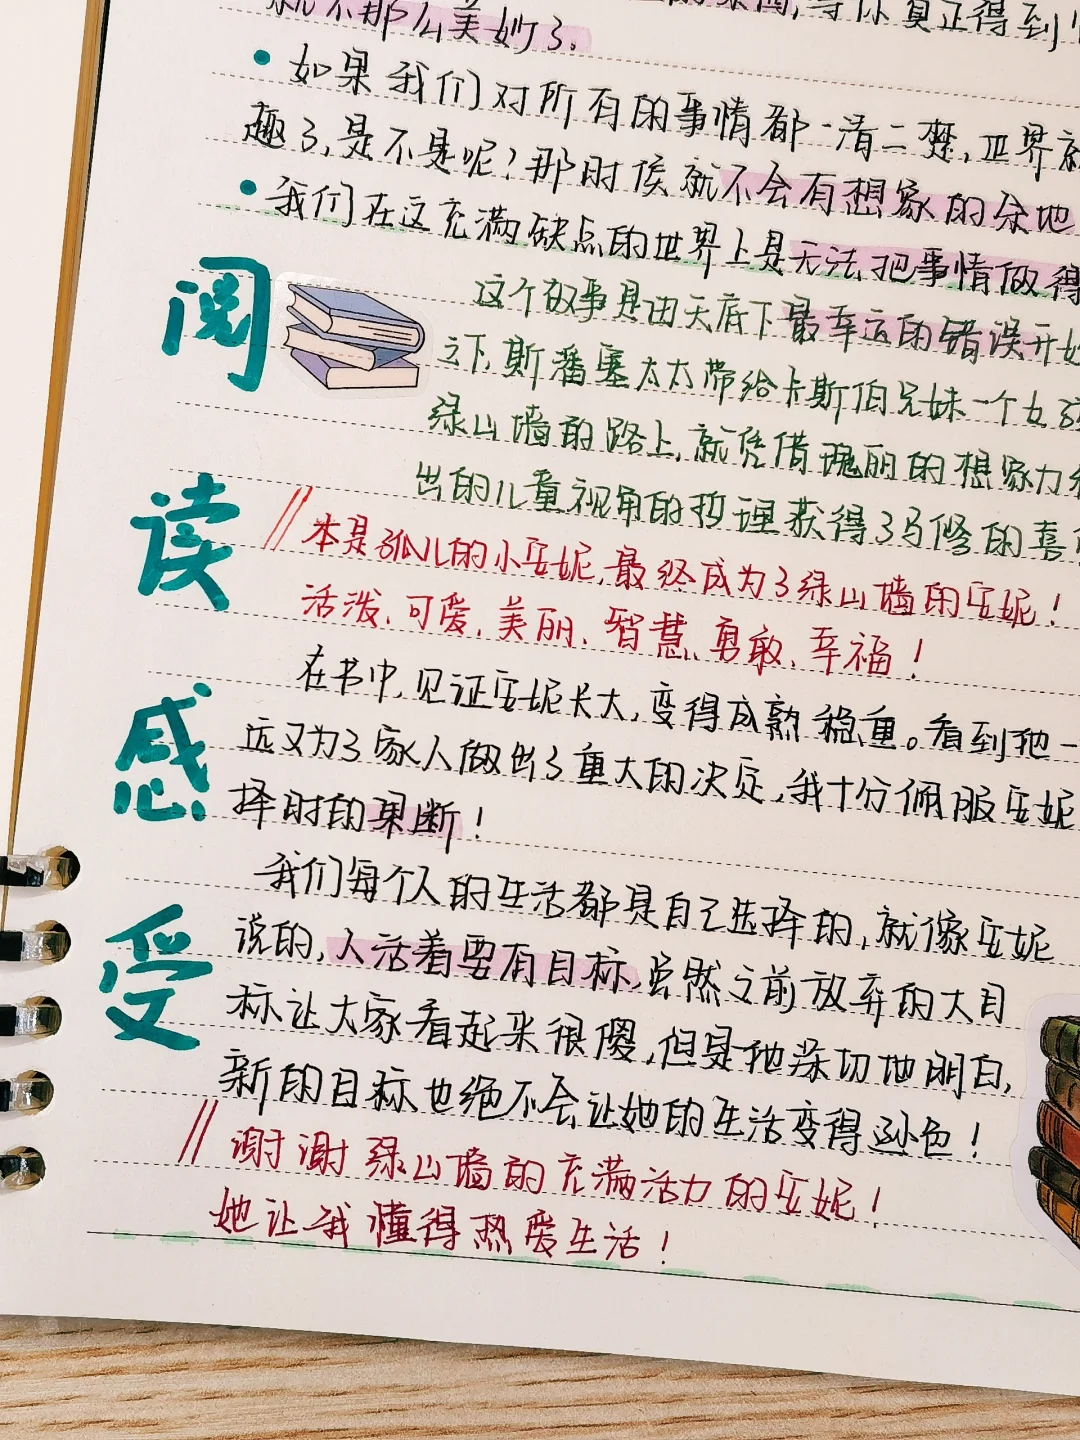 就不那么美妙了。
等你真正得到
• 如果我们对所有的事情都一清二楚，世界就
趣了，是不是呢？那时候就不会有想象的余地
• 我们在这充满缺点的世界上是无法把事情做得
阅
这个故事是由天底下最幸运的错误开始
之下，斯潘塞太太带给卡斯伯兄妹一个女孩
绿山墙的路上，就凭借瑰丽的想象力
出的儿童视角的哲理获得了马修的喜
读
// 本是孤儿的小安妮，最终成为了绿山墙的安妮！
活泼、可爱、美丽、智慧、勇敢、幸福！
感
在书中，见证安妮长大，变得成熟稳重。看到她一
远又为了家人做出了重大的决定，我十分佩服安妮
择时的果断！
受
我们每个人的生活都是自己选择的，就像安妮
说的，人活着要有目标，虽然之前放弃的大目
标让大家看起来很傻，但是她深切地明白，
新的目标也绝不会让她的生活变得逊色！
// 谢谢绿山墙的充满活力的安妮！
她让我懂得热爱生活！